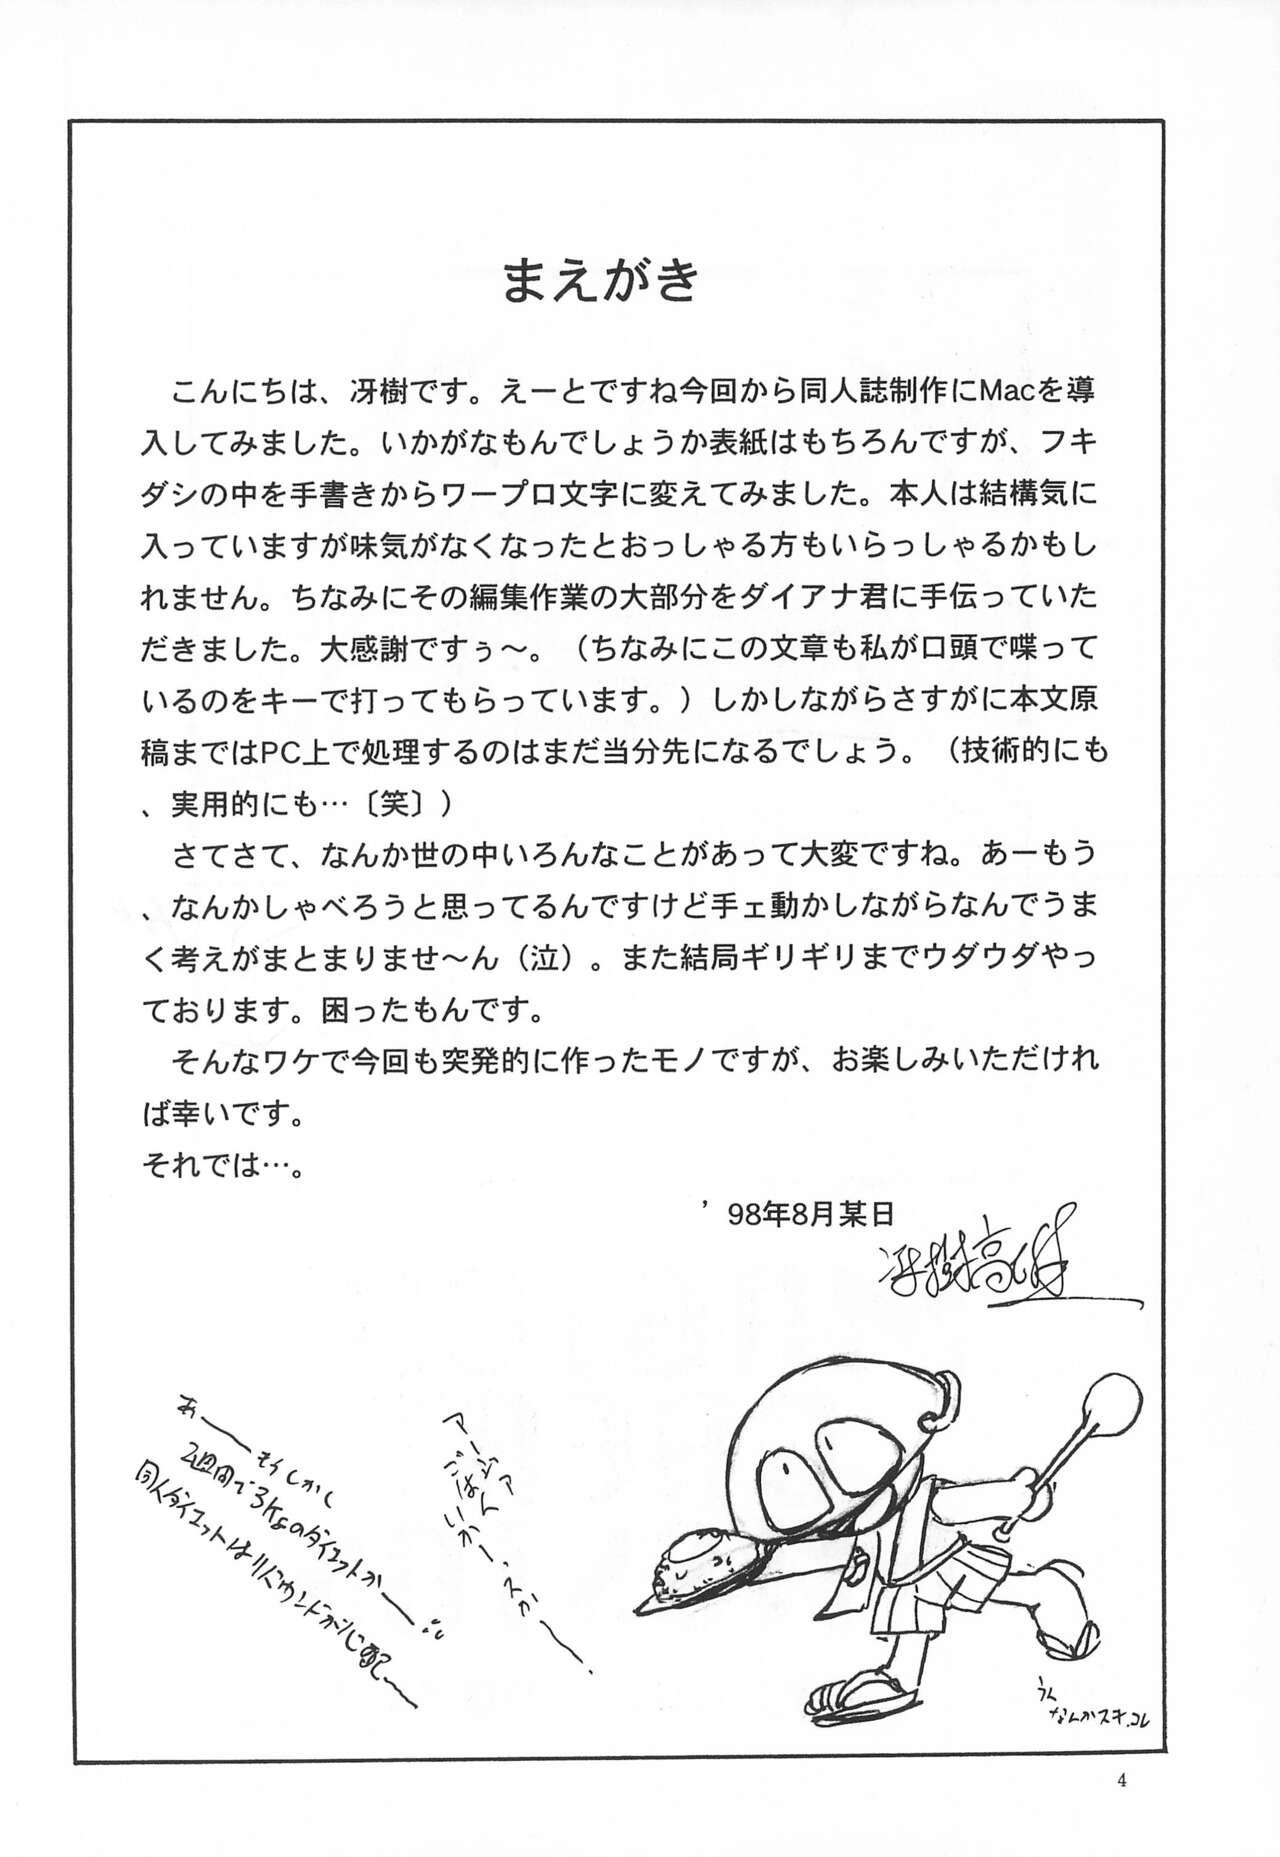 まえがき
　こんにちは、冴樹です。えーとですね今回から同人誌制作にMacを導
入してみました。いかがなもんでしょうか表紙はもちろんですが、フキ
ダシの中を手書きからワープロ文字に変えてみました。本人は結構気に
入っていますが味気がなくなったとおっしゃる方もいらっしゃるかもし
れません。ちなみにその編集作業の大部分をダイアナ君に手伝っていた
だきました。大感謝ですぅ〜。（ちなみにこの文章も私が口頭で喋って
いるのをキーで打ってもらっています。）しかしながらさすがに本文原
稿まではPC上で処理するのはまだ当分先になるでしょう。（技術的にも
、実用的にも…〔笑〕）
　さてさて、なんか世の中いろんなことがあって大変ですね。あーもう
、なんかしゃべろうと思ってるんですけど手ェ動かしながらなんでうま
く考えがまとまりませ〜ん（泣）。また結局ギリギリまでウダウダやっ
ております。困ったもんです。
　そんなワケで今回も突発的に作ったモノですが、お楽しみいただけれ
ば幸いです。
それでは…。
’98年8月某日
冴樹高雄
あーーもしかし
2週間で3kgのダイエットかーー
同人ダイエットはリバウンドが心配ー
アージャア
ごはん
いかーースかー.
うん
なんかスキ.コレ
4